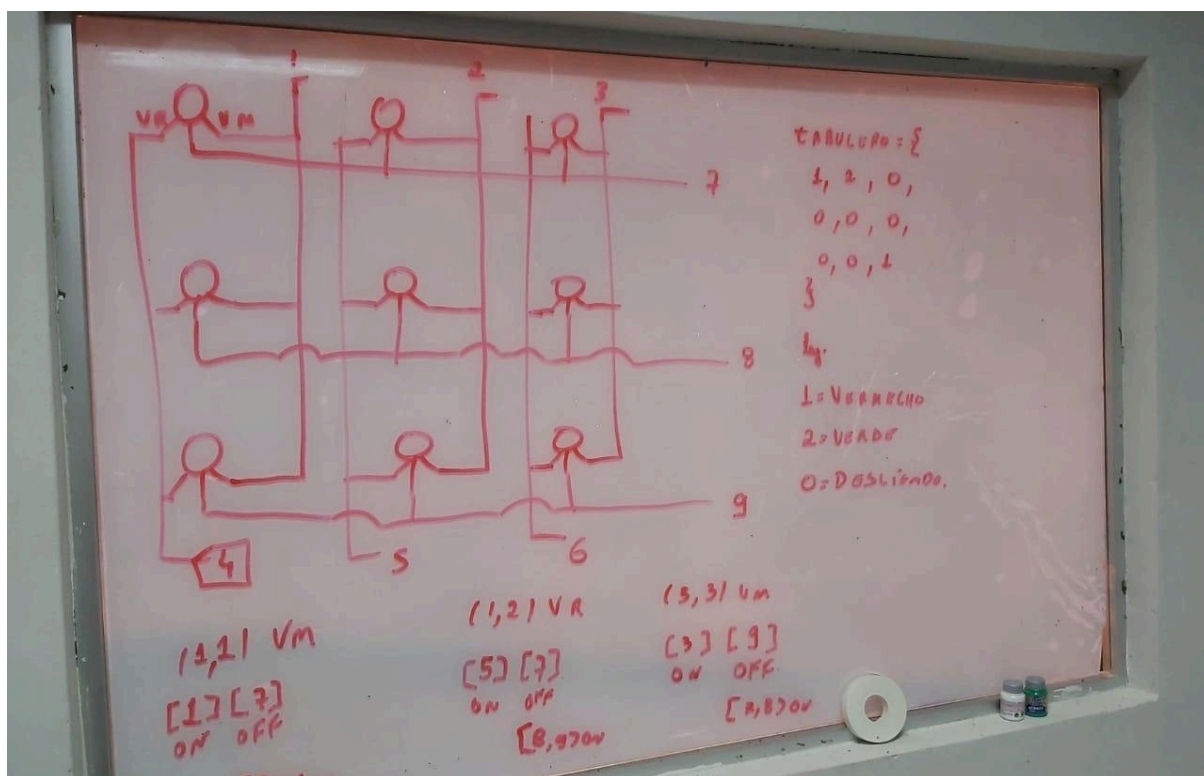 1
2
3
VR VM
7
8
9
4
5
6
TABULEIRO = {
1, 2, 0,
0, 0, 0,
0, 0, 1
}
leg.
1 = VERMELHO
2 = VERDE
0 = DESLIGADO.
(1,1) VM
[1] [7]
ON OFF
(1,2) VR
[5] [7]
ON OFF
[8,9] ON
(3,3) VM
[3] [9]
ON OFF
[7,8] ON